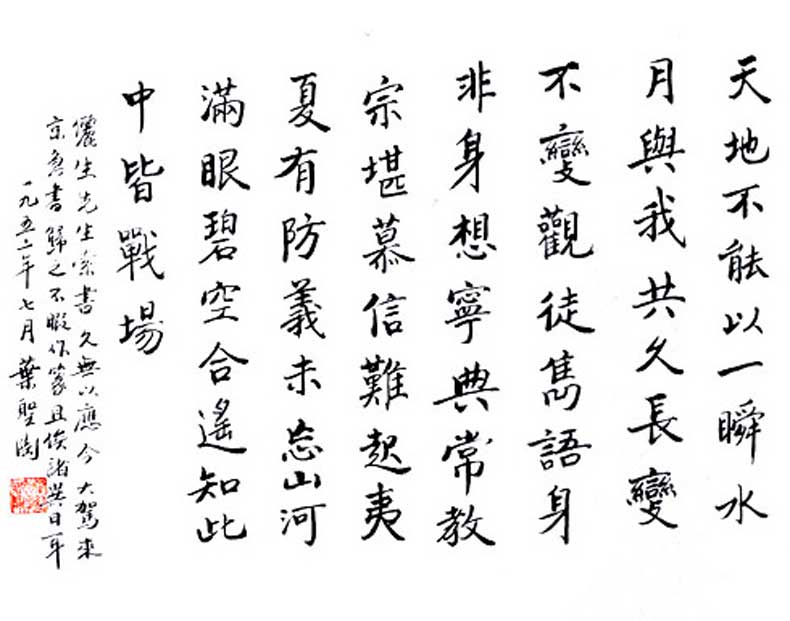 天地不能以一瞬水
月與我共久長變
不變觀徒雋語身
非身想寧典常教
宗堪慕信難起夷
夏有防義未忘山河
滿眼碧空合遙知此
中皆戰場
儷生先生索書久無以應今 大駕來
京書歸之不暇作篆且俟諸異日耳
一九五二年七月葉聖陶